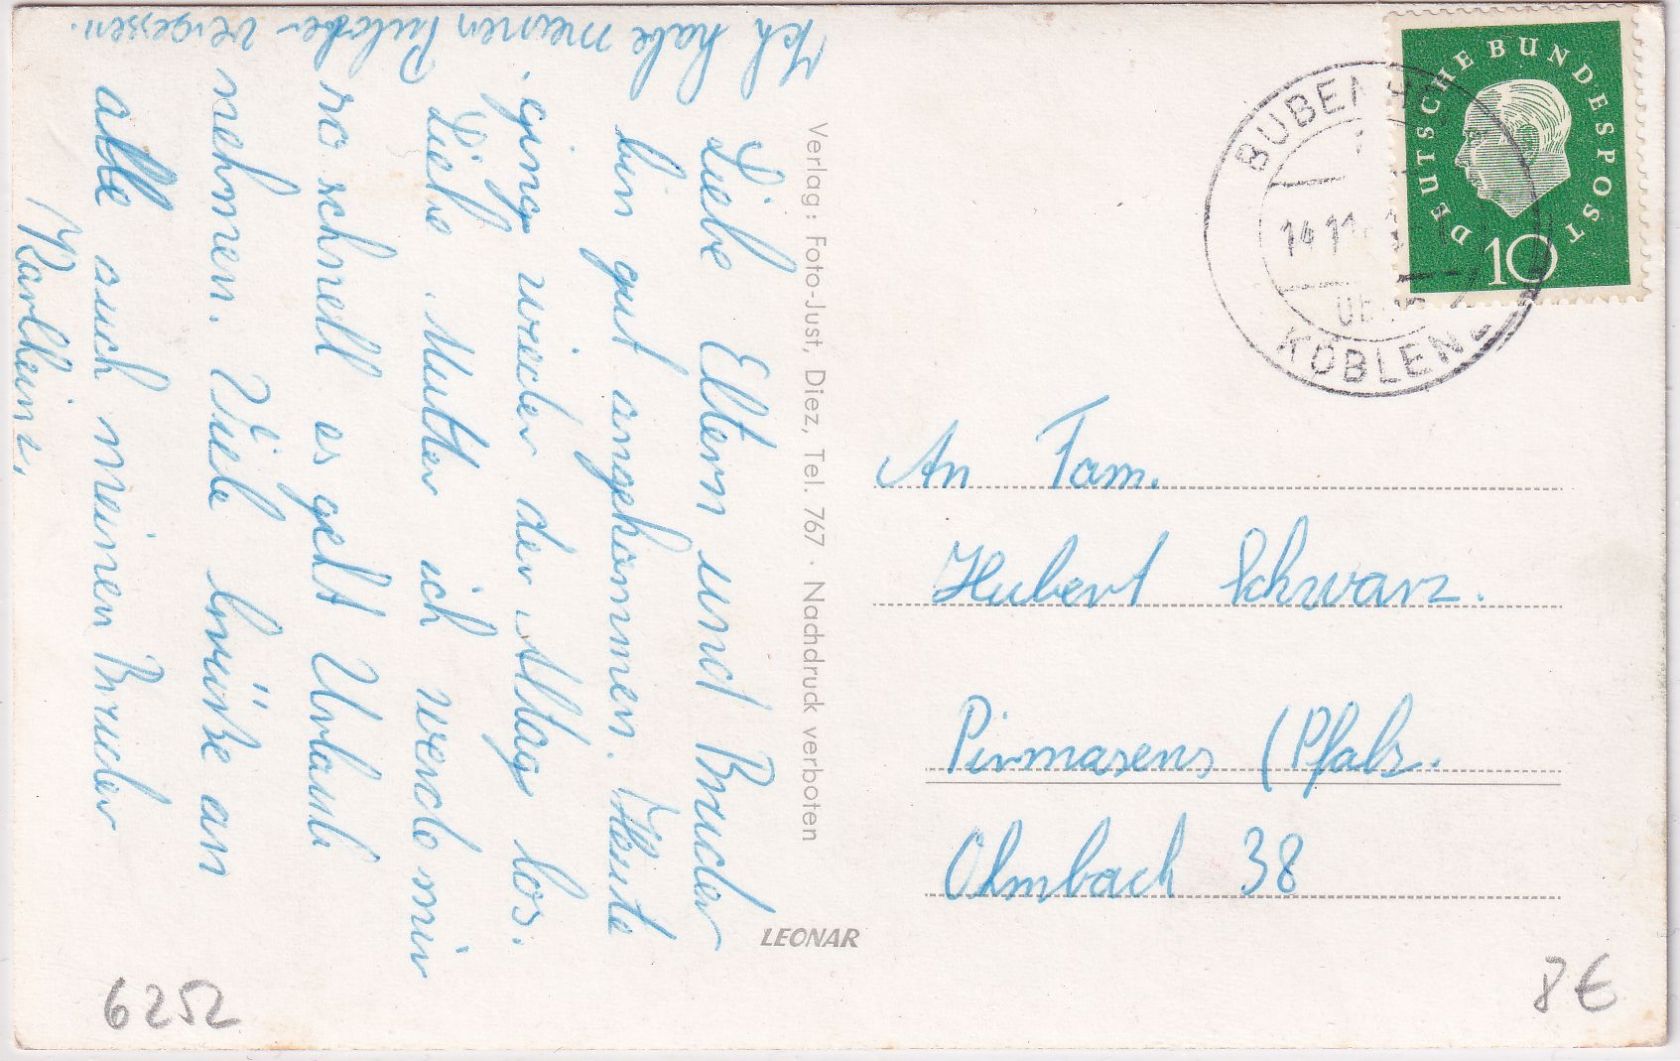 Ich habe meinen Pulover vergessen.
Liebe Eltern und Bruder
bin gut angekommen. Heute
ging wieder der Alltag los.
Liebe Mutter ich werde mir
so schnell es geht Urlaub
nehmen. Viele Grüße an
alle auch meinen Bruder
Karlheinz.
Verlag: Foto-Just, Diez, Tel. 767 · Nachdruck verboten
LEONAR
6252
DEUTSCHE BUNDESPOST
10
14 11
KOBLENZ
An Fam.
Hubert Schwarz.
Pirmasens (Pfalz.
Ohmbach 38
8€